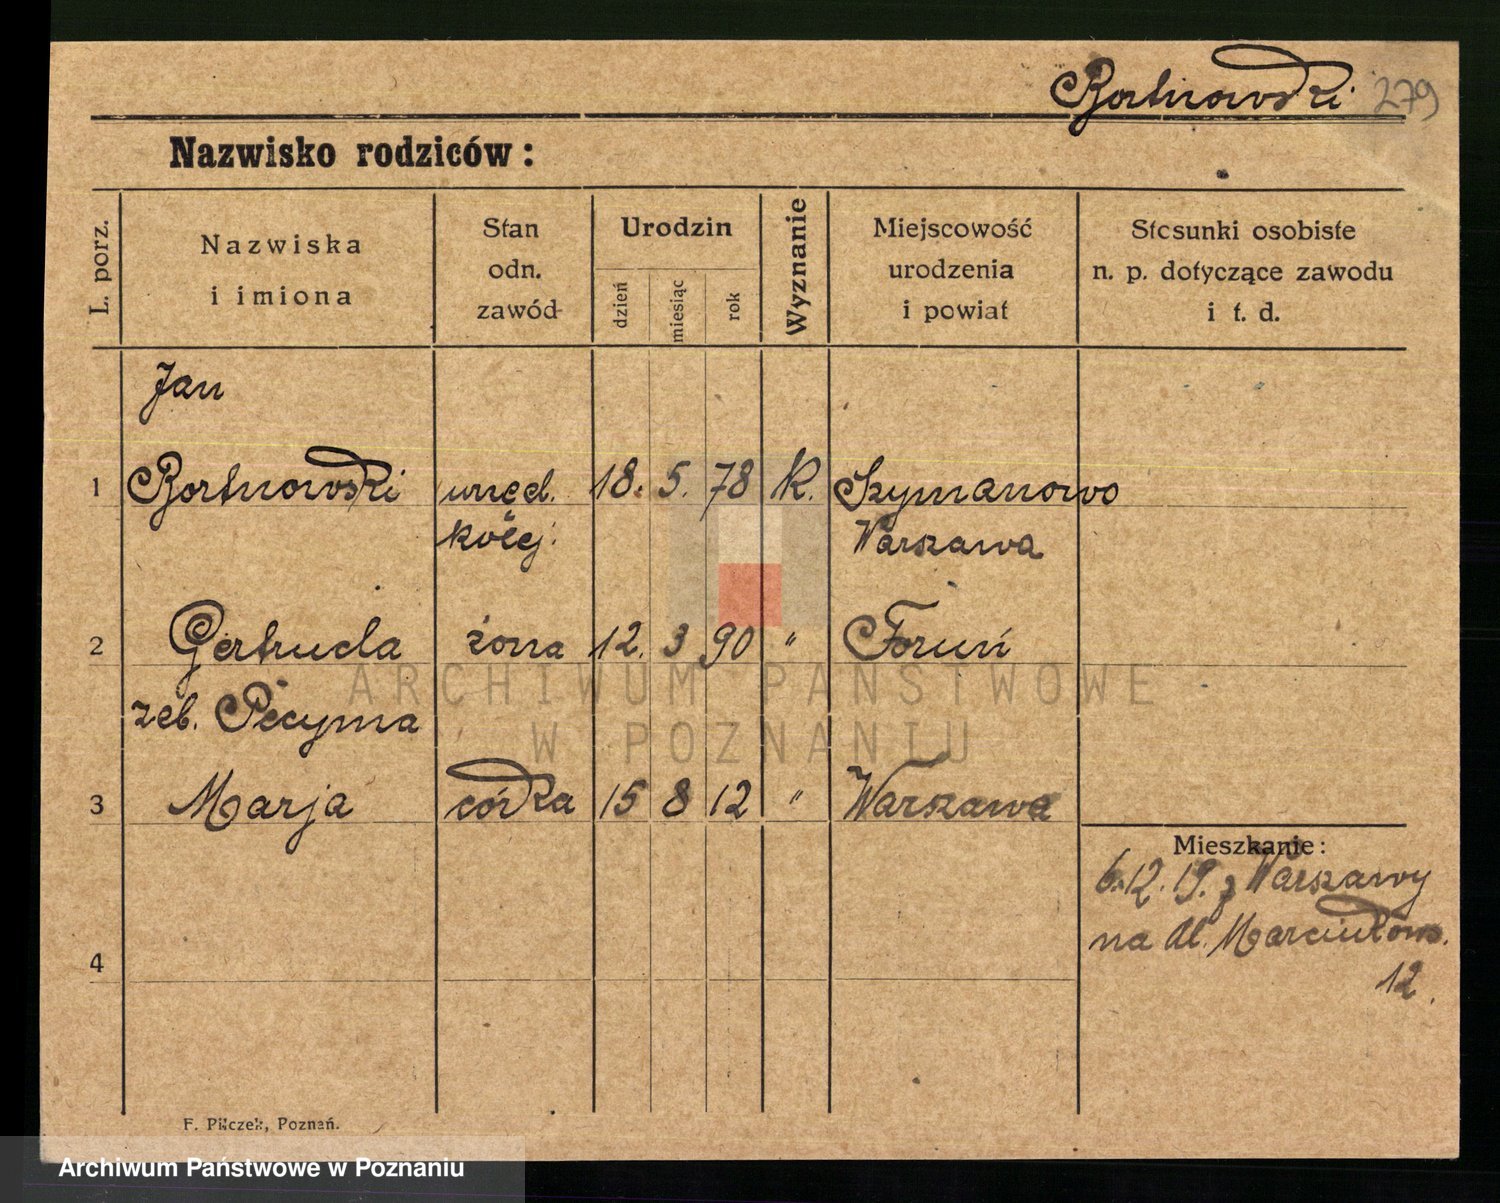 Bortnowski 279
Nazwisko rodziców:
L. porz.
Nazwiska
i imiona
Stan
odn.
zawód
Urodzin
dzień
miesiąc
rok
Wyznanie
Miejscowość
urodzenia
i powiat
Stosunki osobiste
n. p. dotyczące zawodu
i t. d.
Jan
1 Bortnowski urzęd. 18. 5. 78 K. Szymanowo
kolej. Warszawa
2 Gertruda żona 12. 3 90 " Toruń
zeb. Pecyma
3 Marja córka 15 8 12 " Warszawa
Mieszkanie:
6.12.19. z Warszawy
na Al. Marcinkows.
12.
4
F. Pilczek, Poznań.
ARCHIWUM PAŃSTWOWE
W POZNANIU
Archiwum Państwowe w Poznaniu